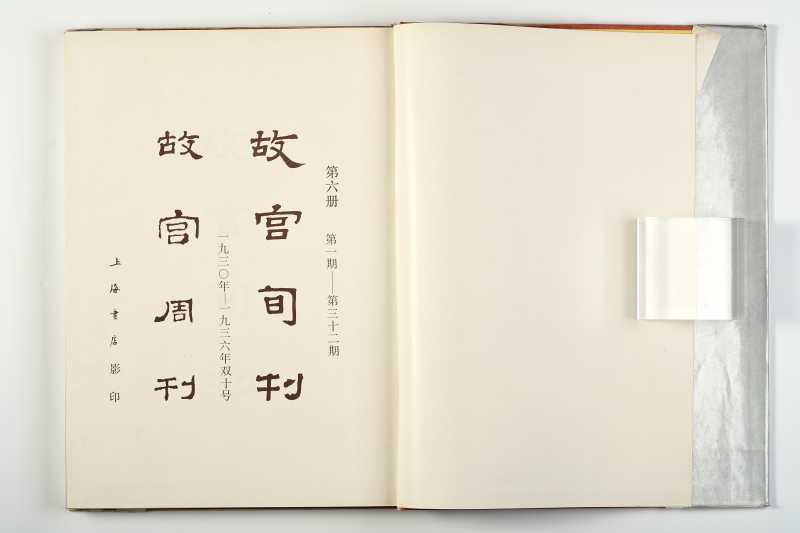 第六册 第一期——第三十二期
故宫旬刊
一九三〇年—一九三六年双十号
故宫周刊
上海书店影印